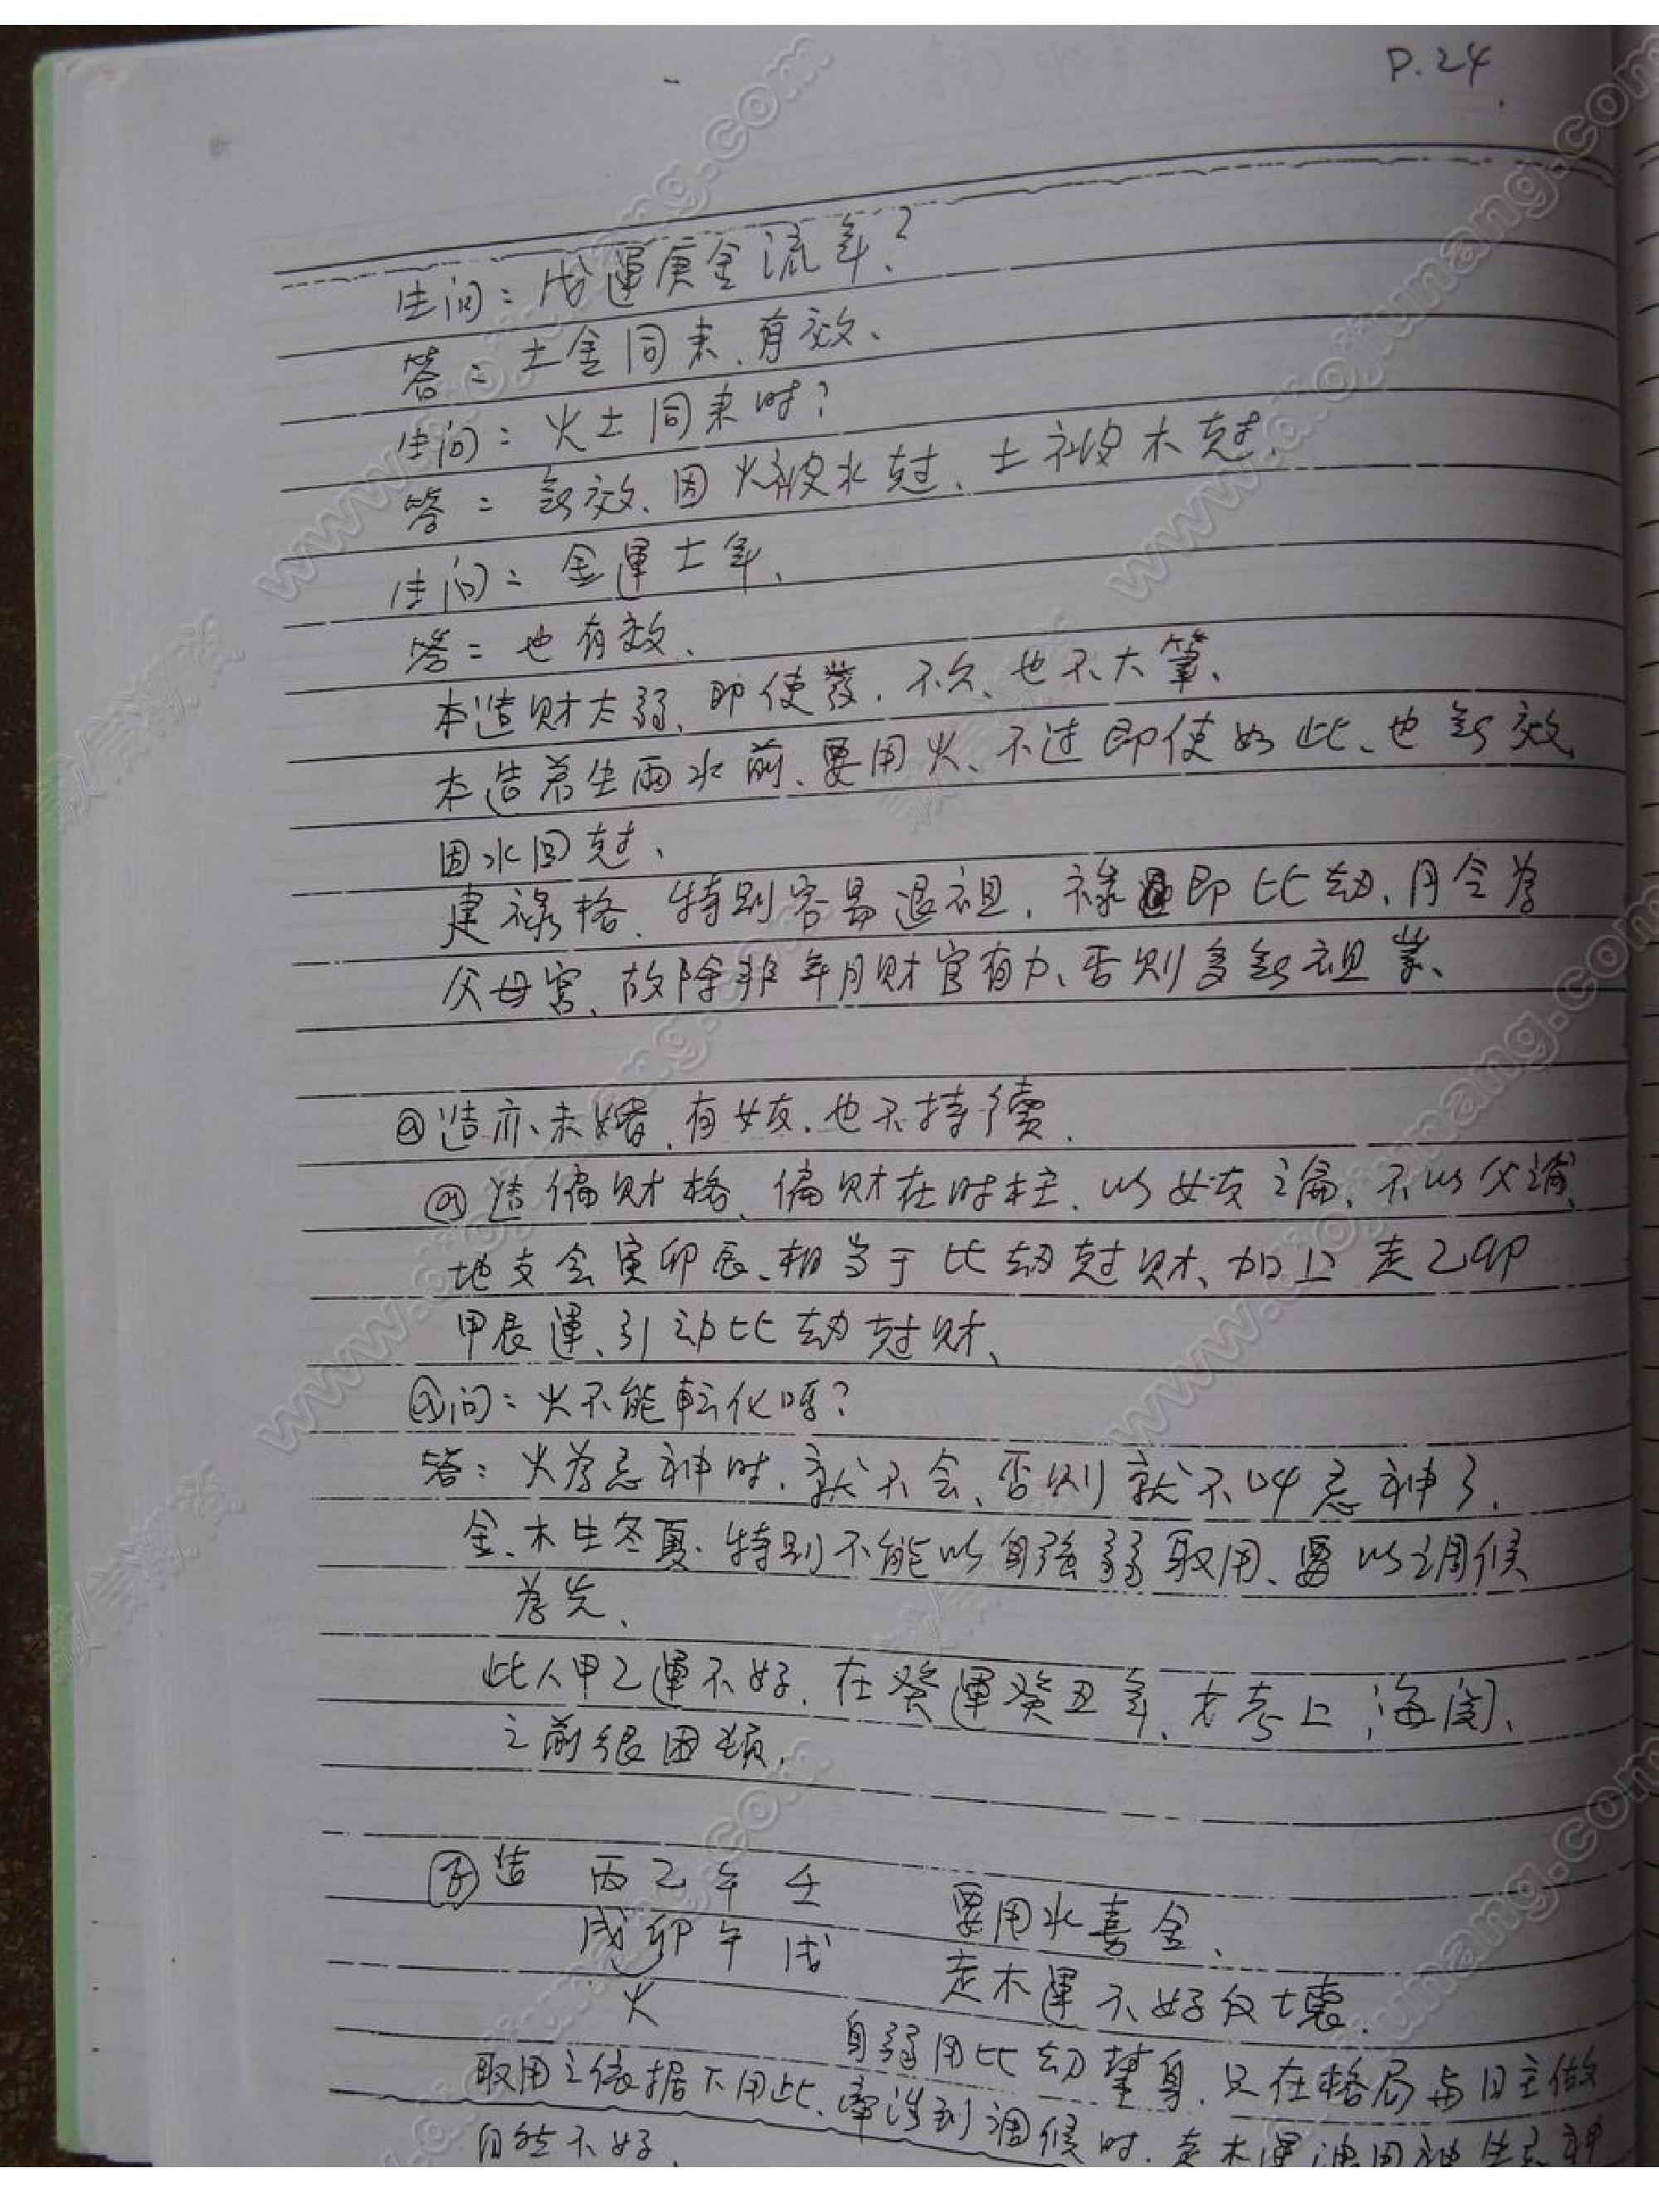 P.24
生问：戌運庚金流年？
答：土金同来、有效、
生问：火土同来时？
答：無效、因火被水尅、土被木尅、
生问：金運土年、
答：也有效、
本造财太弱、即使發、不久、也不大筆、
本造若生雨水前、要用火、不过即使如此、也無效、
因水回尅、
建祿格、特别容易退祖、祿即比劫、月令為
父母宮、故除非年月财官有力、否则多無祖業、
造亦未婚、有女友、也不持續、
造偏财格、偏财在时柱、以女友論、不以父論、
地支会寅卯辰、相当于比劫尅财、加上走乙卯
甲辰運、引动比劫尅财、
问：火不能転化吗？
答：火為忌神时、就不会、否则就不叫忌神了、
金、木生冬夏、特别不能以身强弱取用、要以调候
為先、
此人甲乙運不好、在癸運癸丑年、才考上海関、
之前很困頓、
造 丙乙午壬 要用水喜金、
戌卯午戌 走木運不好反壊、
火
身弱用比劫幫身、只在格局与日主做
取用之依据不用此、牽涉到调候时、走木運洩用神生忌神
自然不好、
www.daojiuhang.com